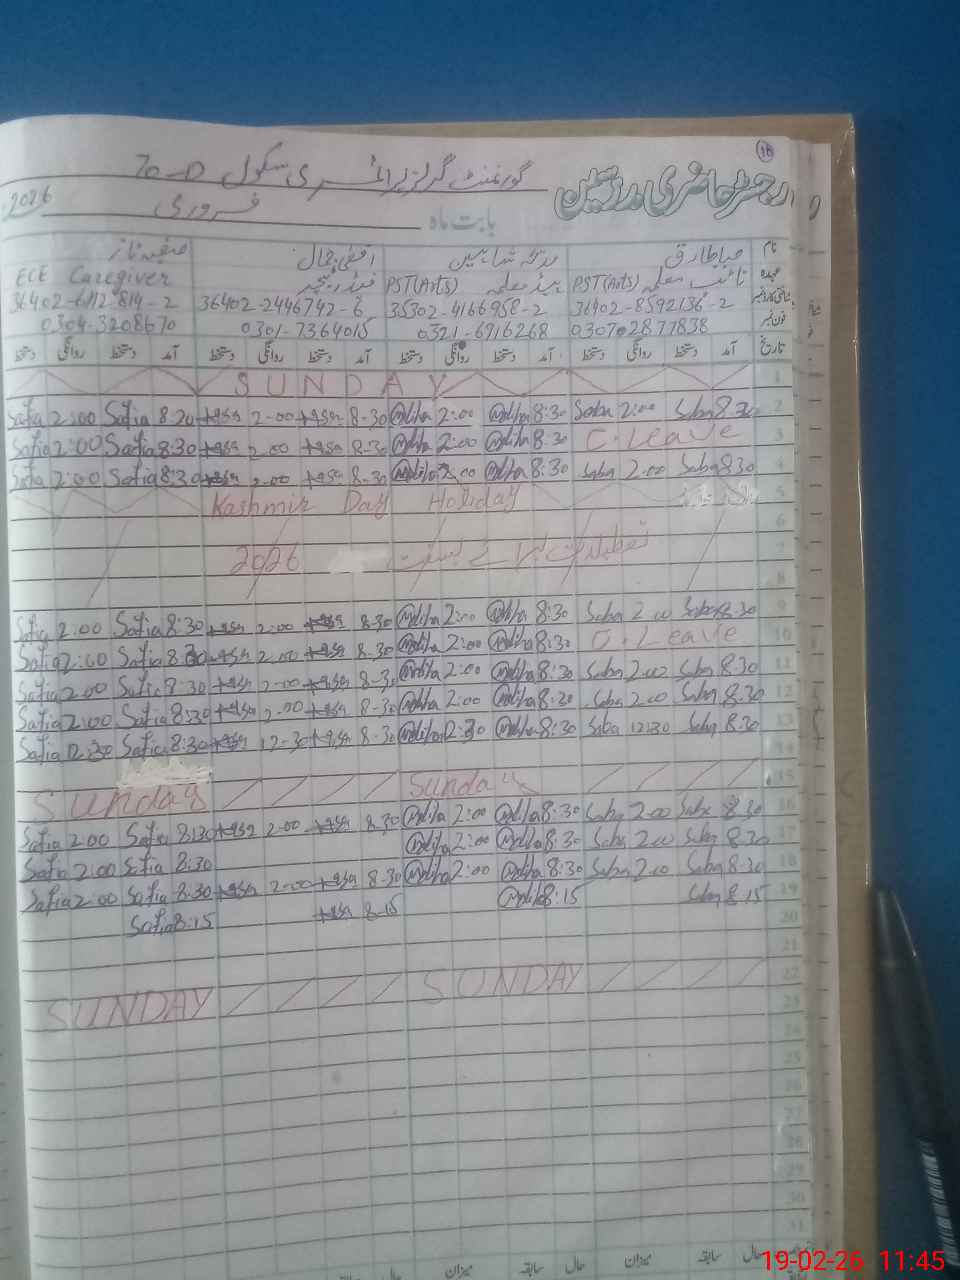 18
رجسٹر حاضری مدرسین
گورنمنٹ گرلز پرائمری سکول 70-D
بابت ماہ فروری 2026
نام صبا طارق مدیحہ شاہین اقصیٰ جمال صفیہ ناز
عہدہ نائب معلمہ PST(Arts) ہیڈ معلمہ PST(Arts) ECE Caregiver
شناختی کارڈ نمبر 36402-8592136-2 35302-4166958-2 36402-2446742-6 36402-6112814-2
فون نمبر 0307-2877838 0321-6916268 0301-7364015 0304-3208670
تاریخ آمد دستخط روانگی دستخط آمد دستخط روانگی دستخط آمد دستخط روانگی دستخط آمد دستخط روانگی دستخط
1 SUNDAY
2 8.30 Saba 2:00 Saba 8:30 Madiha 2:00 Madiha 8-30 Aqsa 2-00 Aqsa 8:30 Safia 2:00 Safia
3 C. Leave 8:30 Madiha 2:00 Madiha 8-30 Aqsa 2.00 Aqsa 8:30 Safia 2:00 Safia
4 8.30 Saba 2.00 Saba 8:30 Madiha 2:00 Madiha 8-30 Aqsa 2.00 Aqsa 8:30 Safia 2:00 Safia
5 Kashmir Day Holiday
6
7 تعطیلات برائے بسنت 2026
8
9 8.30 Saba 2.00 Saba 8:30 Madiha 2:00 Madiha 8-30 Aqsa 2:00 Aqsa 8:30 Safia 2:00 Safia
10 C. Leave 8:30 Madiha 2:00 Madiha 8-30 Aqsa 2.00 Aqsa 8:30 Safia 2:00 Safia
11 8.30 Saba 2.00 Saba 8:30 Madiha 2:00 Madiha 8-30 Aqsa 2-00 Aqsa 8:30 Safia 2:00 Safia
12 8.30 Saba 2.00 Saba 8:30 Madiha 2:00 Madiha 8-30 Aqsa 2-00 Aqsa 8:30 Safia 2:00 Safia
13 8.30 Saba 12:30 Saba 8:30 Madiha 12:30 Madiha 8-30 Aqsa 12-30 Aqsa 8:30 Safia 12:30 Safia
14
15 Sunday Sunday
16 8.30 Saba 2.00 Saba 8:30 Madiha 2:00 Madiha 8.30 Aqsa 2-00 Aqsa 8:30 Safia 2:00 Safia
17 8.30 Saba 2.00 Saba 8:30 Madiha 2:00 Madiha 8:30 Safia 2:00 Safia
18 8.30 Saba 2.00 Saba 8:30 Madiha 2:00 Madiha 8-30 Aqsa 2-00 Aqsa 8:30 Safia 2:00 Safia
19 8.15 Saba 8:15 Madiha 8-15 Aqsa 8:15 Safia
20
21
22 SUNDAY SUNDAY
23
24
25
26
27
28
29
30
31
حال سابقہ میزان حال سابقہ میزان حال سابقہ
19-02-26 11:45